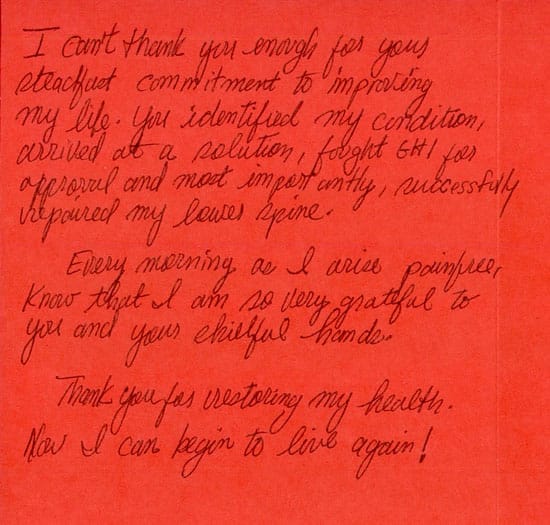 I can't thank you enough for your
steadfast commitment to improving
my life. You identified my condition,
arrived at a solution, fought GHI for
approval and most importantly, successfully
repaired my lower spine.
Every morning as I arise painfree,
know that I am so very grateful to
you and your skillful hands.
Thank you for restoring my health.
Now I can begin to live again!